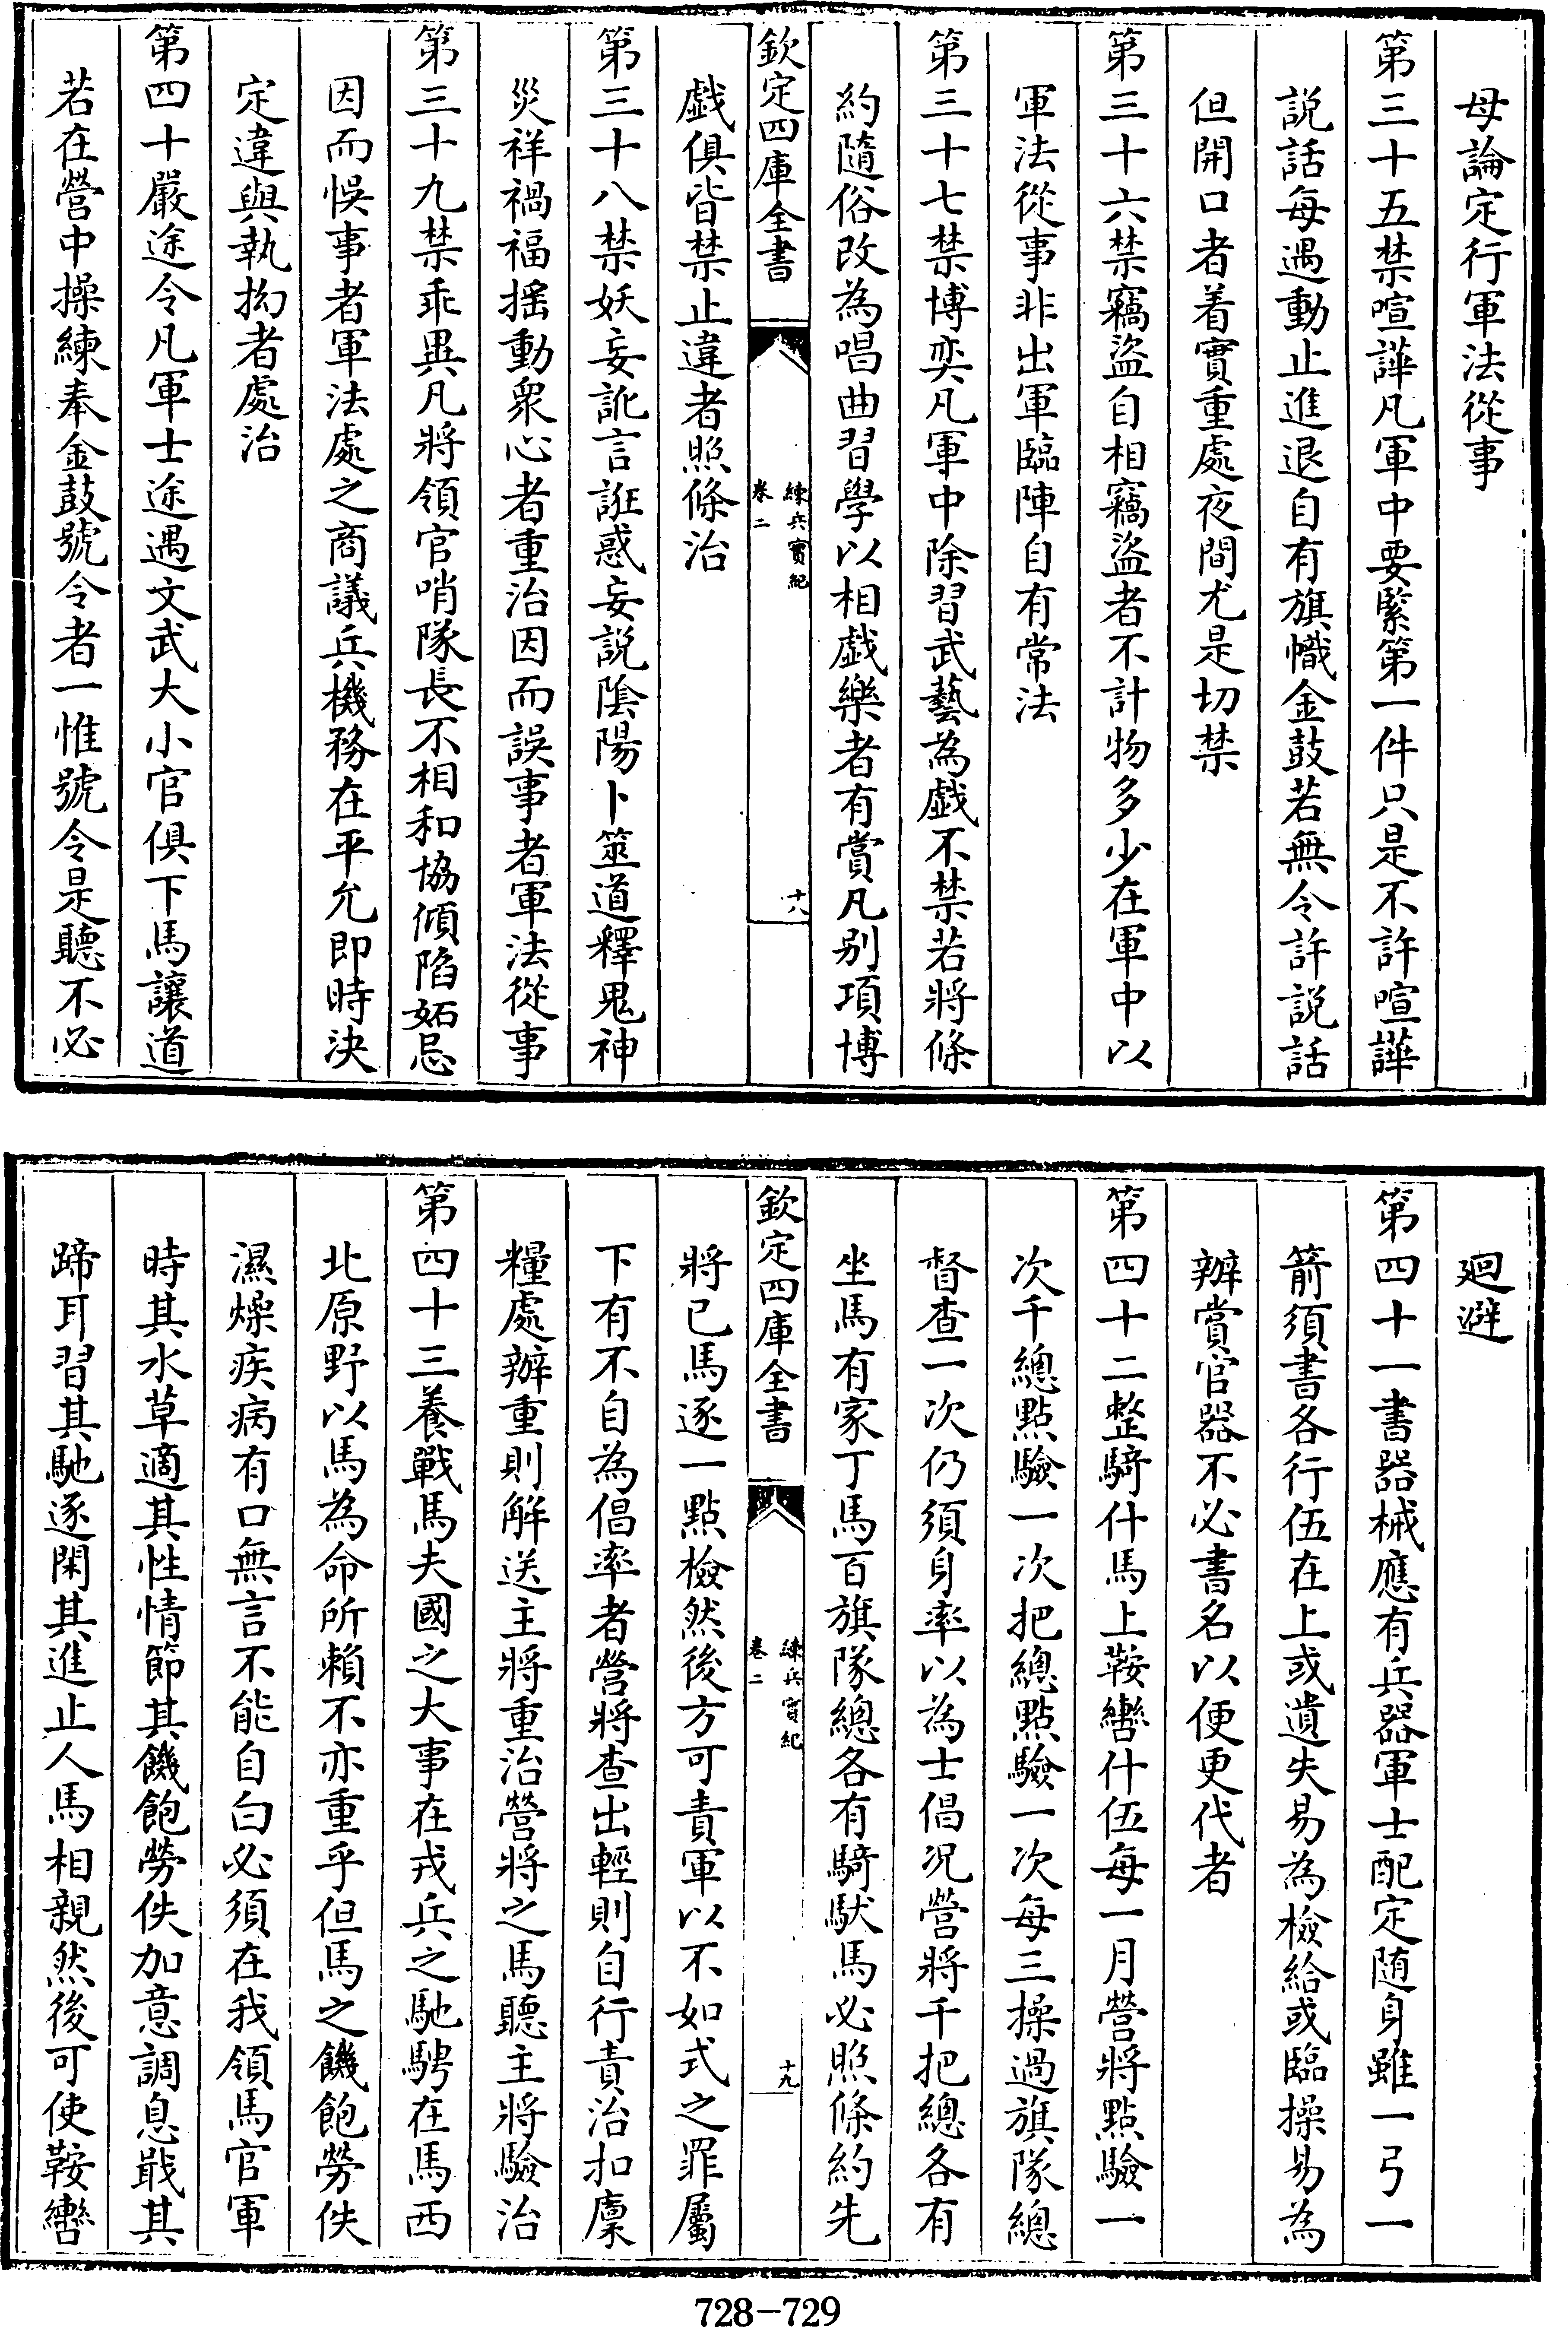 毋論定行軍法從事
第三十五禁喧譁凡軍中要緊第一件只是不許喧譁
説話每遇動止進退自有旗幟金鼓若無令許説話
但開口者着實重處夜間尤是切禁
第三十六禁竊盜自相竊盜者不計物多少在軍中以
軍法從事非出軍臨陣自有常法
第三十七禁博奕凡軍中除習武藝為戯不禁若將條
約隨俗改為唱曲習學以相戯樂者有賞凡别項博
欽定四庫全書
練兵實紀
卷二
十八
戯俱皆禁止違者照條治
第三十八禁妖妄訛言誑惑妄説陰陽卜筮道釋鬼神
災祥禍福揺動衆心者重治因而誤事者軍法從事
第三十九禁乖異凡將領官哨隊長不相和協傾陷妬忌
因而悞事者軍法處之商議兵機務在平允即時決
定違與執拗者處治
第四十嚴途令凡軍士途遇文武大小官俱下馬讓道
若在營中操練奉金鼓號令者一惟號令是聽不必
廻避
第四十一書器械應有兵器軍士配定随身雖一弓一
箭須書各行伍在上或遺失易為檢給或臨操易為
辦賞官器不必書名以便更代者
第四十二整騎什馬上鞍轡什伍每一月營將點驗一
次千總點驗一次把總點驗一次每三操過旗隊總
督查一次仍須身率以為士倡况營將千把總各有
坐馬有家丁馬百旗隊總各有騎馱馬必照條約先
欽定四庫全書
練兵實紀
卷二
十九
將已馬逐一點檢然後方可責軍以不如式之罪屬
下有不自為倡率者營將查出輕則自行責治扣廪
糧處辦重則解送主將重治營將之馬聽主將驗治
第四十三養戰馬夫國之大事在戎兵之馳騁在馬西
北原野以馬為命所賴不亦重乎但馬之饑飽勞佚
濕燥疾病有口無言不能自白必須在我領馬官軍
時其水草適其性情節其饑飽勞佚加意調息戢其
蹄耳習其馳逐閑其進止人馬相親然後可使鞍轡
728-729